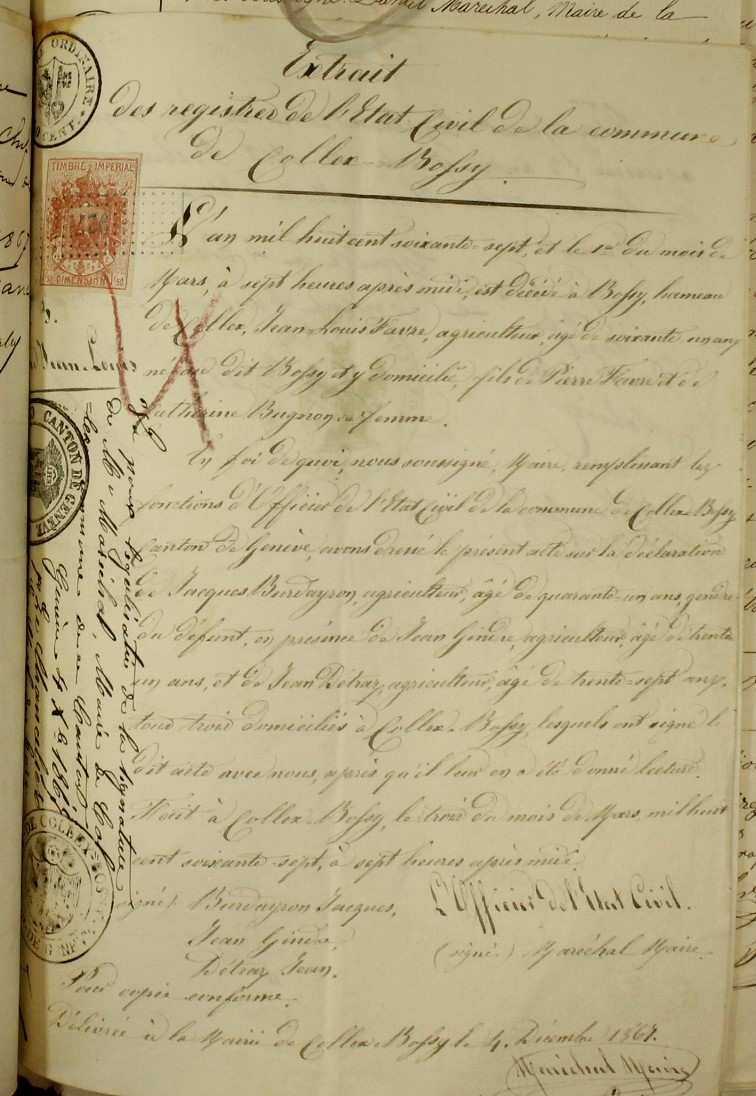 Maréchal, Maire de la
Extrait
des registres de l'Etat Civil de la commune
de Collex-Bossy.
TIMBRE IMPERIAL
DIMENSION
L'an mil huit cent soixante-sept, et le 1er du mois de
Mars, à sept heures après midi, est décédé à Bossy, hameau
de Collex, Jean-Louis Favre, agriculteur, âgé de soixante un ans,
né au dit Bossy et y domicilié, fils de Pierre Favre et de
Catherine Bugnon sa femme.
En foi de quoi, nous soussigné, Maire, remplissant les
fonctions d'Officier de l'Etat Civil de la commune de Collex-Bossy
Canton de Genève, avons dressé le présent acte sur la déclaration
de Jacques Burdayron, agriculteur, âgé de quarante-un ans, gendre
du défunt, en présence de Jean Gindre, agriculteur, âgé de trente
un ans, et de Jean Détraz, agriculteur, âgé de trente-sept ans,
tous trois domiciliés à Collex-Bossy, lesquels ont signé le
dit acte avec nous, après qu'il leur en a été donné lecture.
Fait à Collex-Bossy, le trois du mois de Mars, mil huit
cent soixante-sept, à sept heures après midi.
signé) Burdayron Jacques,
Jean Gindre
Détraz Jean.
L'Officier de l'Etat Civil.
(signé) Maréchal Maire.
Pour copie conforme.
Délivrée à la Mairie de Collex-Bossy le 4 Décembre 1867.
Maréchal Maire
Vu pour légalisation de la signature
de Mr Maréchal, Maire de Col
Genève 4 Xbre 1867
CANTON DE GENÈVE
Jean Louis
ORDINAIRE